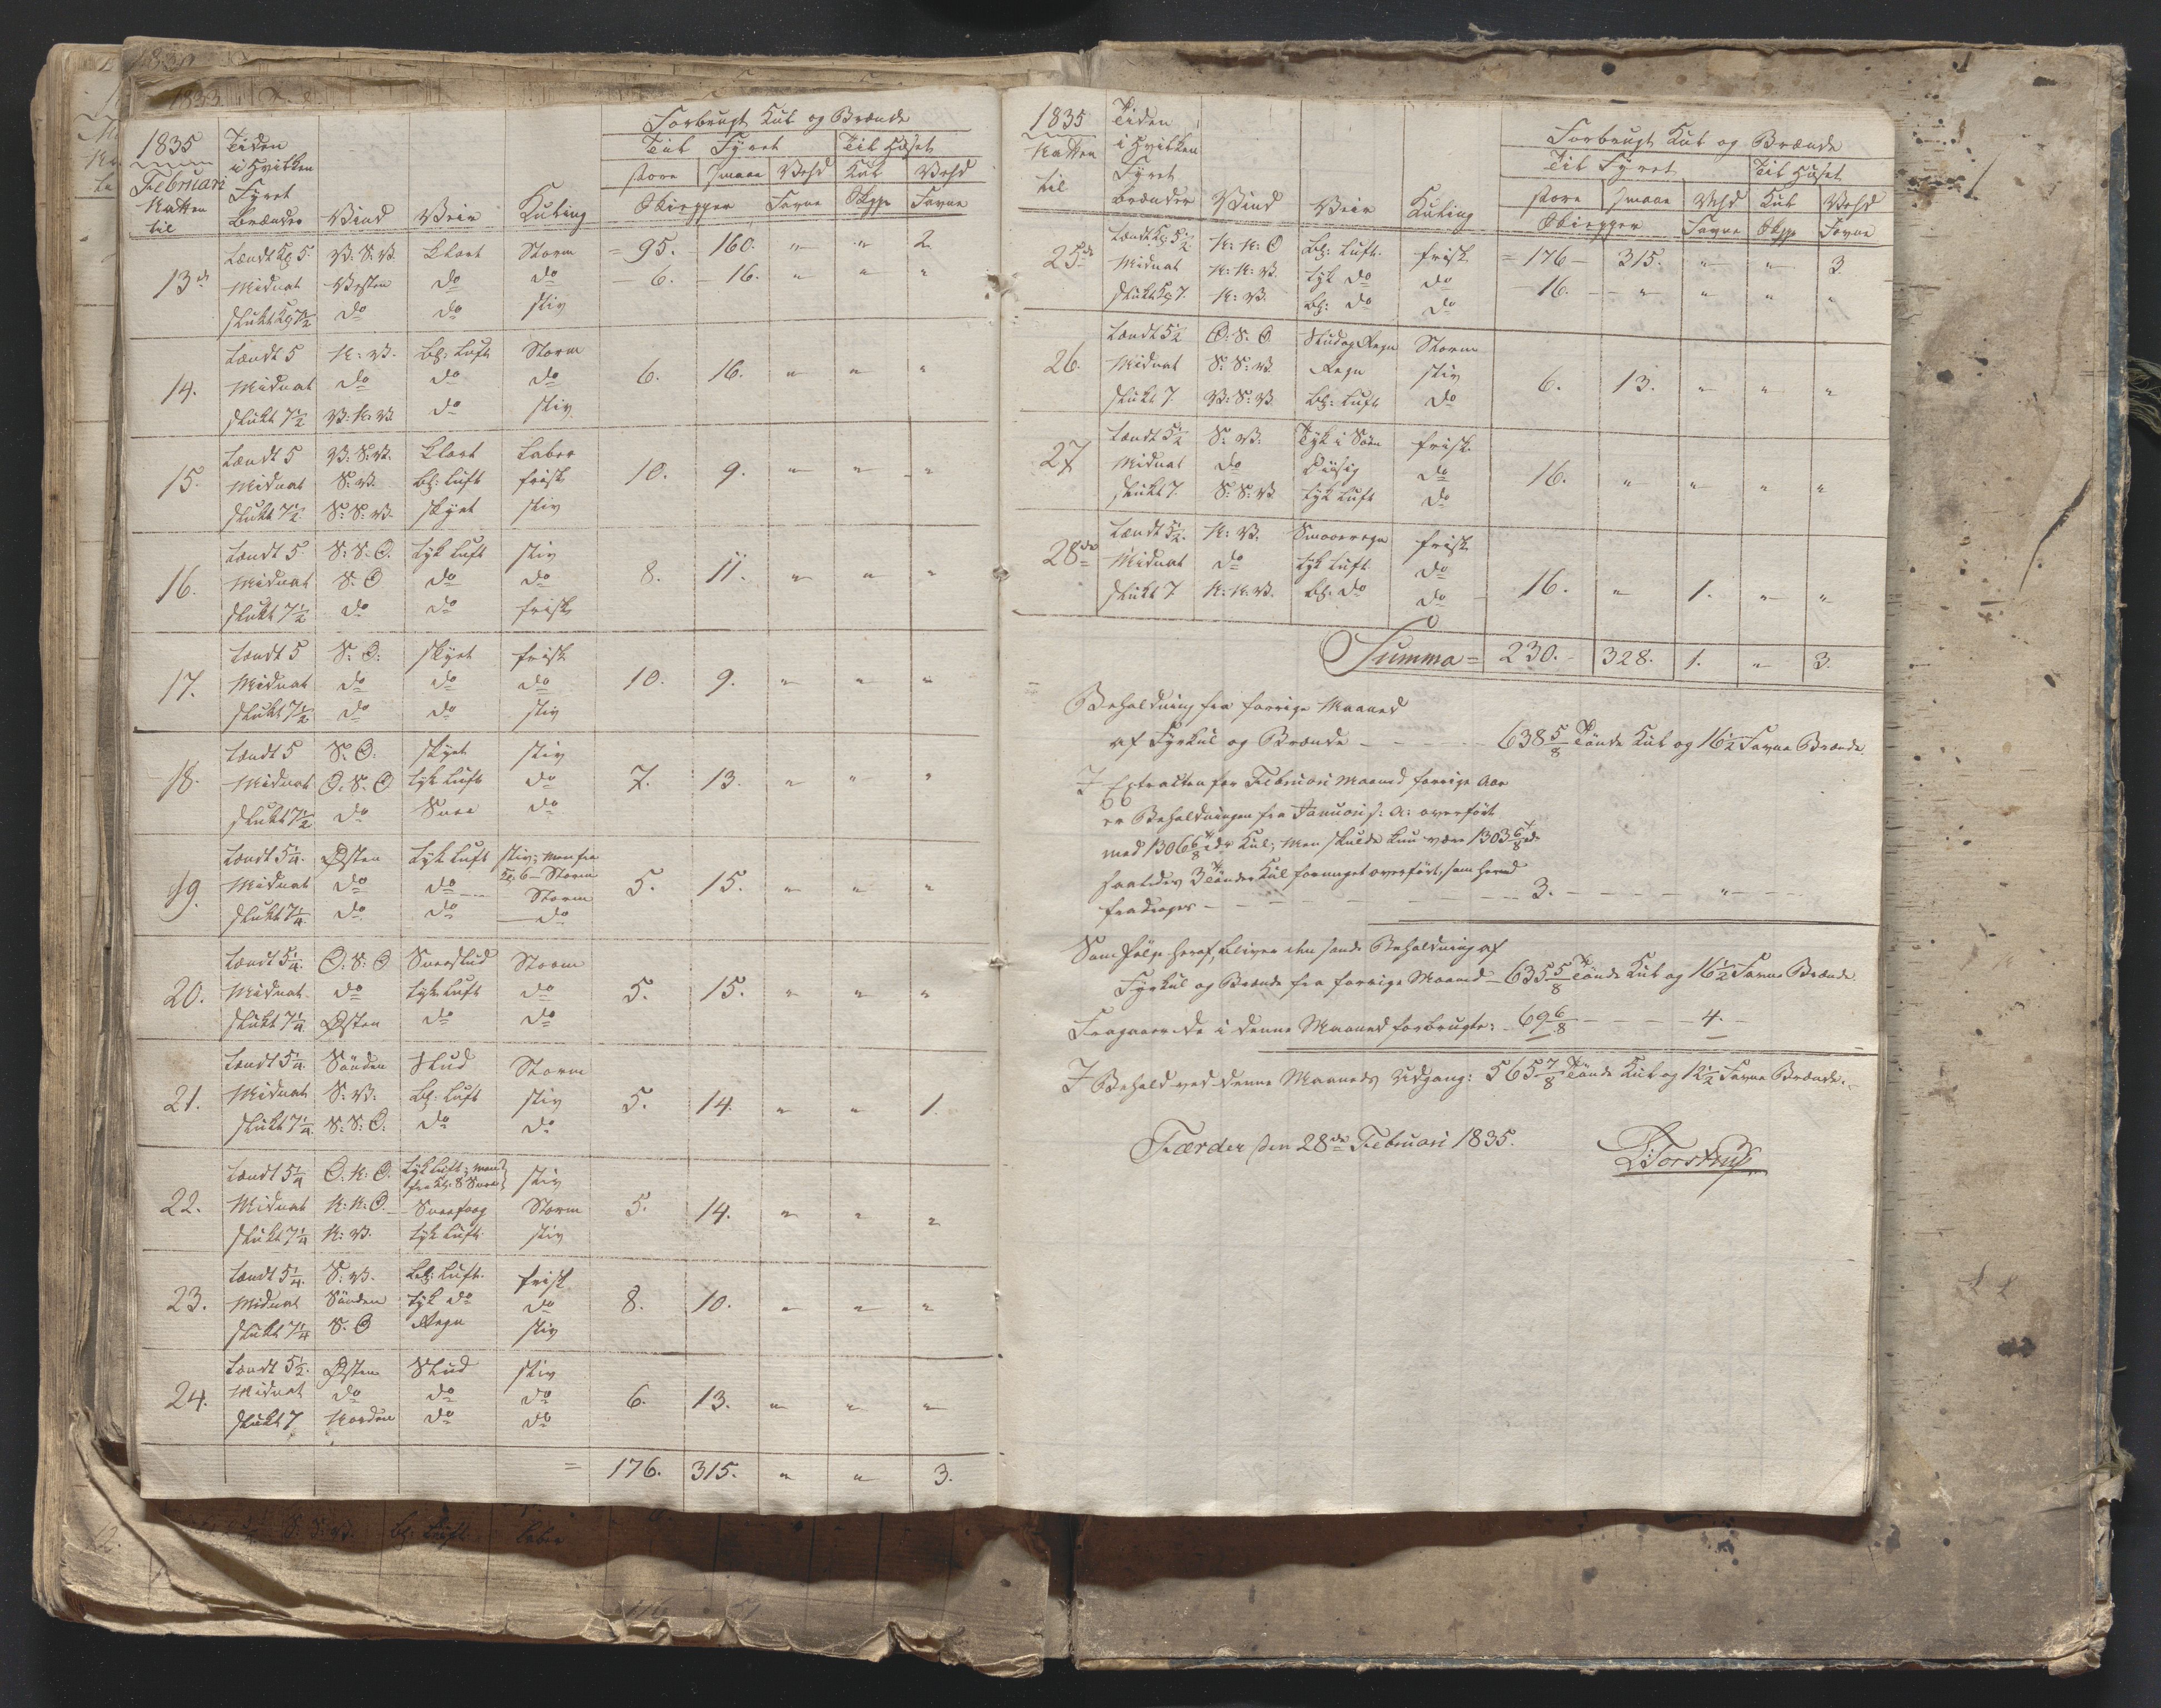 1835 Tiden Forbrugt Kul og Brænde
i hvilken Til Fyret Til Huset
Februari Fyret store smaae Vehd Kul Vehd
Natten til Brænder Vind Veir Kuling Skiepper Favne Skpp Favne
tændt Kl 5. V: S: V. Klart Storm = 95. 160. " " 2.
13de Midnat Vesten do do 6. 16. " " "
slukt Kl 7½ do do stiv
tændt 5 N: V. bl: Luft Storm
14. Midnat do do do 6. 16. " " "
slukt 7½ V: N: V. do stiv
tændt 5 V: S: V. Klart Laber
15. Midnat S: V. bl: Luft frisk 10. 9. " " "
slukt 7½ S: S: V. skyet stiv
tændt 5 S: S: O. tyk Luft stiv
16. Midnat S. O do do 8. 11. " " "
slukt 7½ do do frisk
tændt 5 S: O: skyet frisk
17. Midnat do do do 10. 9. " " "
slukt 7½ do do stiv
tændt 5 S: O. skyet stiv
18. Midnat O. S. O tyk Luft do 7. 13. " " "
slukt 7½ do Snee do
tændt 5¼ Østen tyk Luft stiv; men fra
Kl: 6 - Storm
19. Midnat do do Storm 5. 15. " " "
slukt 7¼ do do do
tændt 5¼. O: S: O Sneeslud Storm
20. Midnat do tyk Luft do 5. 15. " " "
slukt 7¼ Østen do do
tændt 5¼ Sönden Slud Storm
21. Midnat S: V: bl: Luft stiv 5. 14. " " 1.
slukt 7¼ S: S: O: do do
tændt 5¼ O. N: O. tyk Luft; men
fra Kl: 8 Snee stiv
22. Midnat N: N: O. Sneefog Storm 5. 14. " " "
slukt 7¼ N: V. tyk Luft stiv
tændt 5¼. S: V. bl: Luft. frisk
23. Midnat Sönden tyk do do 8. 10. " " "
slukt 7¼ S. O Regn stiv
tændt 5½. Østen Slud stiv
24. Midnat do do do 6. 13. " " "
slukt 7 Norden do do
= 176. 315. " " 3.
1835 Tiden Forbrugt Kul og Brænde
Natten i hvilken Til Fyret Til Huset
til Fyret store smaae Vehd Kul Vehd
Brænder Vind Veir Kuling Skiepper Favne Skpp Favne
tændt Kl 5½ N: N: O bl: Luft. frisk = 176 - 315. " " 3.
25de Midnat N: N: V. tyk do do 16. " " " "
slukt Kl 7. N: V. bl: do do
tændt 5½ O. S. O Slud og Regn Storm
26. Midnat S: S: V. Regn stiv 6. 13. " " "
slukt 7. V: S: V. bl: Luft do
tændt 5½ S: V. Tyk i Söen frisk
27 Midnat do Diisig do 16. " " " "
slukt 7. S: S: V. tyk Luft do
tændt 5½. N: V. Smaaeregn frisk
28de Midnat do tyk Luft do
slukt 7 N: N. V. bl. do do 16. " 1. " "
Summa = 230. 328. 1. " 3.
Beholdning fra forrige Maaned
af Fyrkul og Brænde - - - - 638 5/8 Tönde Kul og 16½ Favne Brænde
I Extrakten for Februari Maaned forrige Aar
er Beholdningen fra Januari s: A: overfört
med 1306 6/8 Tdr Kul; men skulde kun være 1303 6/8 Td
saaledes 3 Tönder Kul formeget overfört, som herved
fradrages - - - - - 3. - - - - " - -
Som fölge heraf, bliver den sande Beholdning af
Fyrkul og Brænde fra forrige Maaned - 635 5/8 Tönde Kul og 16½ Favne Brænde.
Fragaaer de i denne Maaned forbrugte: - 69 6/8 - - - - 4. -
I Behold ved denne Maaneds Udgang: 565 7/8 Tönde Kul og 12½ Favne Brænde.
Færder den 28de Februari 1835.